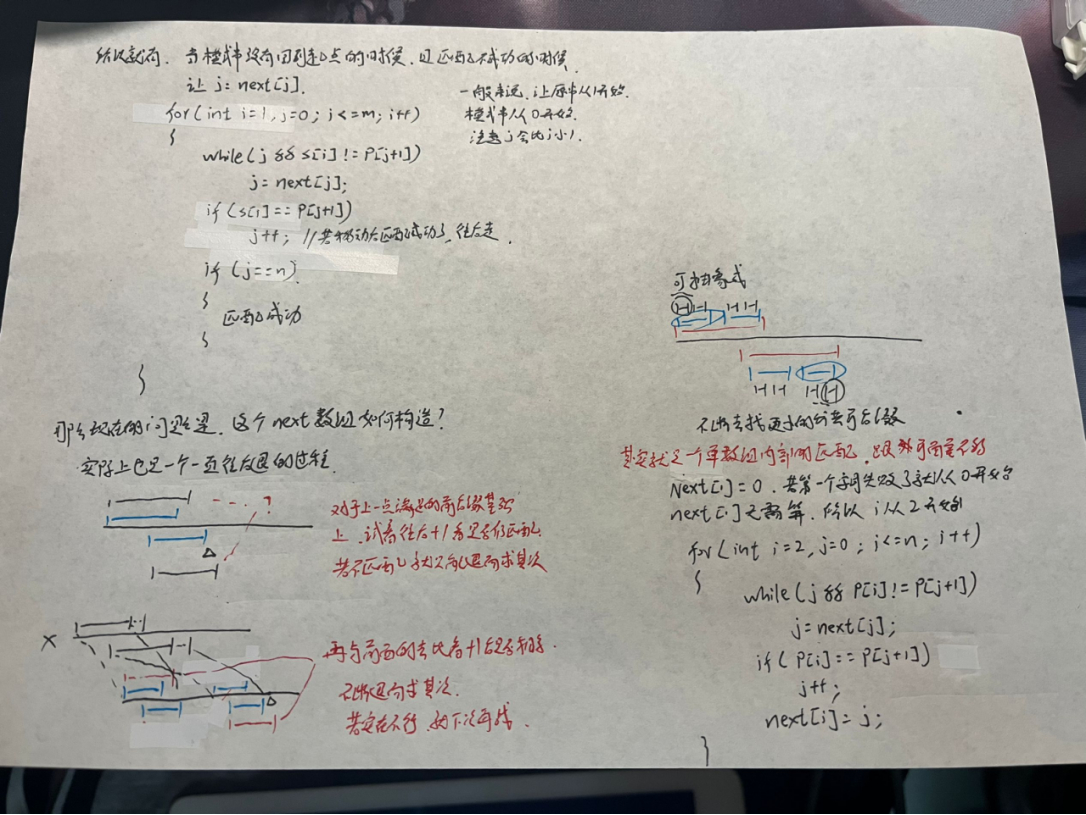 所以就有. 当模式串没有回到起点的时候, 且匹配不成功的时候
让 j=next[j].
for(int i=1, j=0; i<=m; i++)
{
while(j && s[i] != P[j+1])
j=next[j];
if(s[i]==P[j+1])
j++; //若移动后匹配成功了, 往后走.
if (j==n)
{
匹配成功
}
}
一般来说, 让原串从1开始.
模式串从0开始.
注意j会比i小1
那么现在的问题是, 这个next数组如何构造?
实际上也是一个一直往后退的过程.
?
对于上一点满足的前后缀基础
上, 试着往后+1看是否能匹配.
若不匹配 就只有退而求其次
×
再与前面的去比着+1后是否相等.
不断退而求其次.
若实在不行, 就下次再找.
可抽象成
不断去找更小的公共前后缀
其实就是一个单数组内部的匹配,
Next[1]=0. 若第一个字母失败了就从0开始
next[1]无需算, 所以i从2开始
for(int i=2, j=0; i<=n; i++)
{
while(j && P[i]!=P[j+1])
j=next[j];
if(P[i]==P[j+1])
j++;
next[i]=j;
}